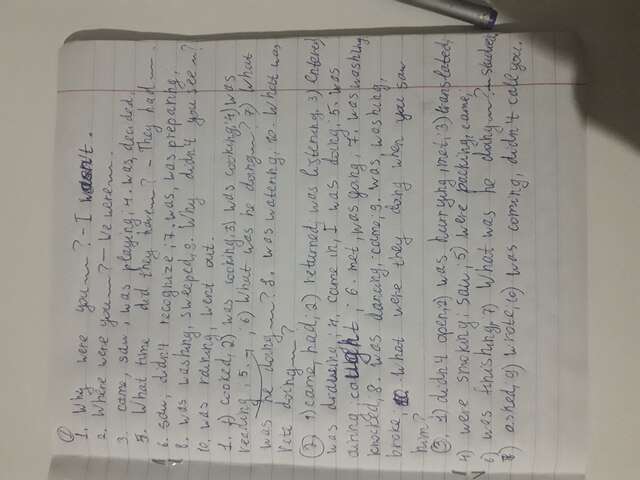 ①
1. Why were you ~? - I wasn't.
2. Where were you ~? - We were ~.
3. came, saw, was playing; 4. was, decided.
5. What time did they have ~? - They had ~.
6. saw, didn't recognize; 7. was, was preparing.
8. was washing, sweeped; 9. Why didn't you see ~?
10. was raining, went out.
1. 1) cooked, 2) was cooking; 3) was cooking; 4) was
reading, 5. ~, 6) What was he doing ~? 7) What
was he doing ~? 8. was watering, 10. What was
Pete doing ~?
② 1) came, had; 2) returned, was listening. 3) entered
was drawing; 4. came in, I was doing; 5. was
airing, caught; 6. met, was going, 7. was washing
knocked; 8. was dancing, came; 9. was, washing,
broke; 10. What were they doing when you saw
him?
③ 1) didn't open, 2) was hurrying, met; 3) translated;
4) were smoking; saw; 5) were packing, came;
6) was finishing, 7) What was he doing ~? - studied,
8) asked, 9) wrote, 10) was coming, didn't call you.